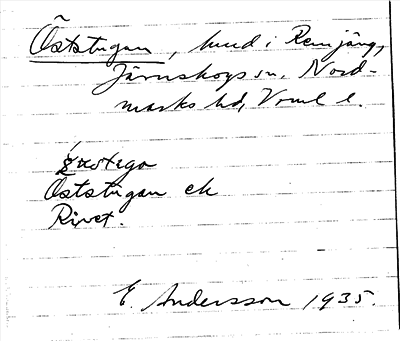 Öststugan, hmd i Remjäng,
Järnskogs sn, Nord-
marks hd, Vrml l.
Öststugan el
Rivet.
E. Andersson 1935.